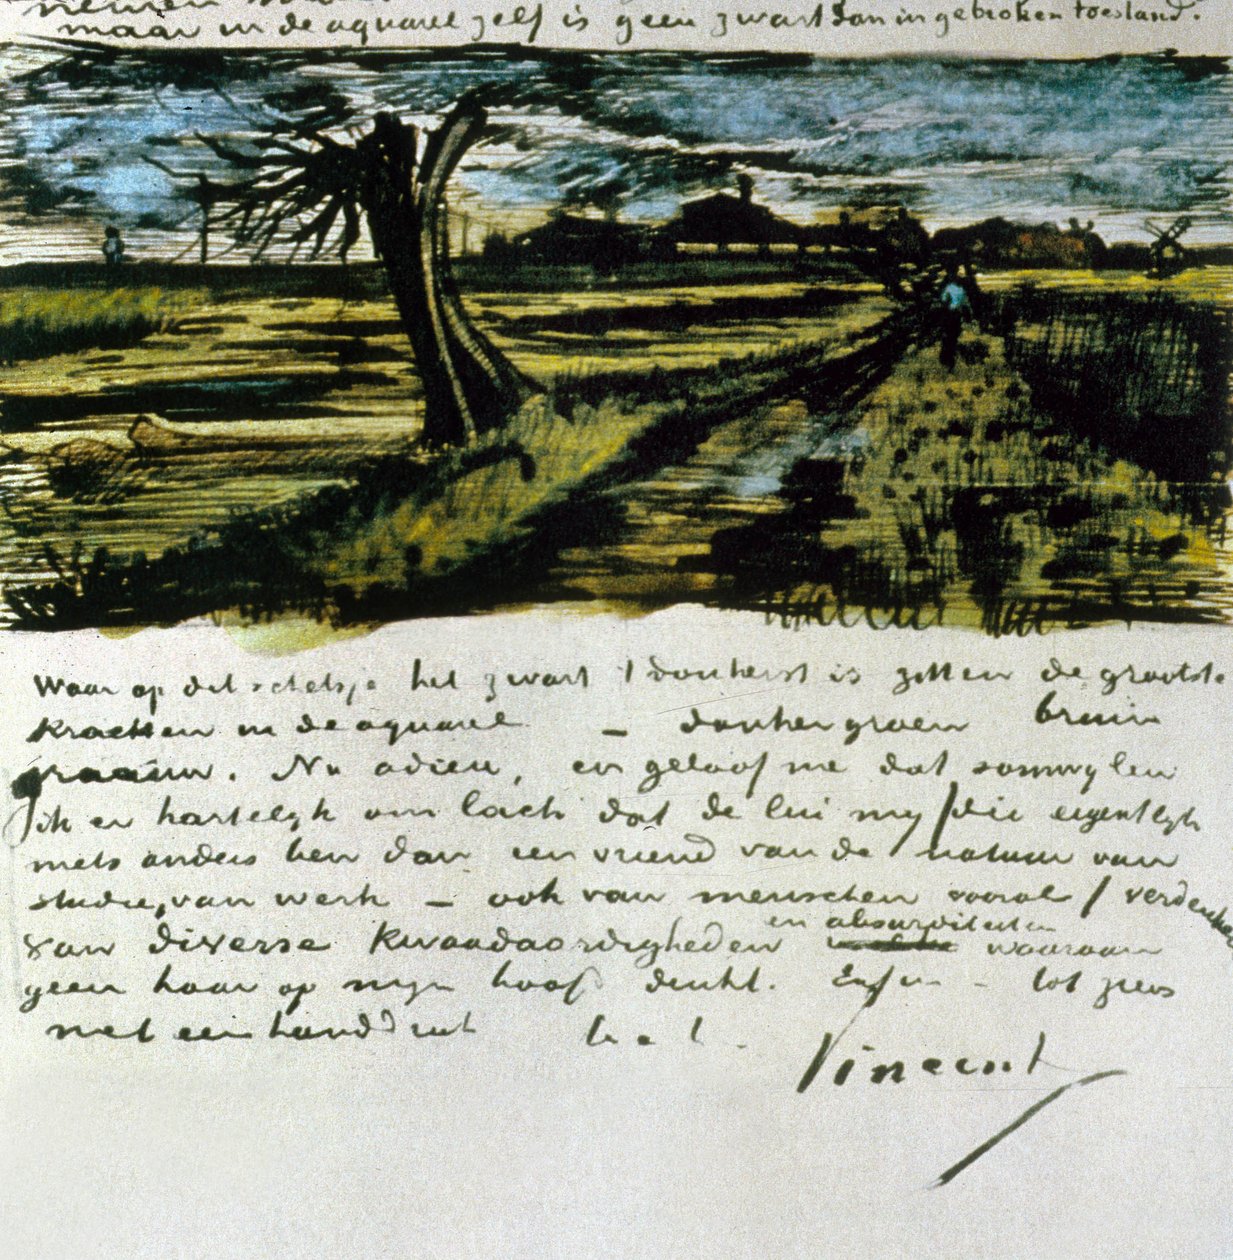 maar in de aquarel zelf is geen zwart dan in gebroken toestand.
Waar op dit schetsje het zwart 't donkerst is zitten de grootste
krachten in de aquarel – donkergroen bruin
graauw. Nu adieu, en geloof me dat somwylen
ik er hartelyk om lach dat de lui my /die eigentlyk
niets anders ben dan een vriend van de natuur van
studie, van werk – ook van menschen vooral/ verdenken
van diverse kwaadaardigheden en absurditeiten waaraan
geen haar op myn hoofd denkt. Enfin – tot ziens
met een handdruk t. à. t.
Vincent